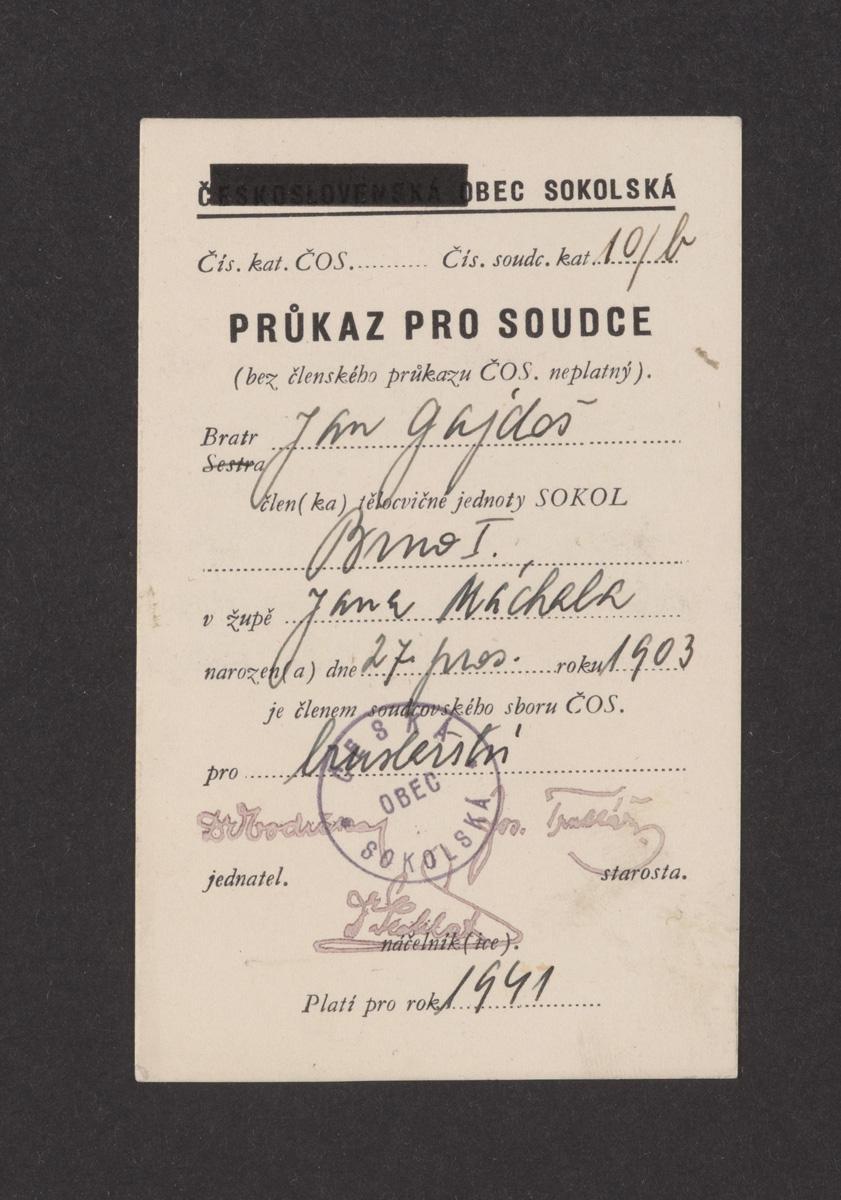 ČESKOSLOVENSKÁ OBEC SOKOLSKÁ
Čís. kat. ČOS........... Čís. soudc. kat. 10/b
PRŮKAZ PRO SOUDCE
(bez členského průkazu ČOS. neplatný).
Bratr Jan Gajdoš
Sestra
člen(ka) tělocvičné jednoty SOKOL
Brno I.
v župě Jana Máchala
narozen(a) dne 27. pros. roku 1903
je členem soudcovského sboru ČOS.
pro bruslařství
ČESKÁ
OBEC
SOKOLSKÁ
Jos. Truhlář
jednatel. starosta.
náčelník(ice).
Platí pro rok 1941